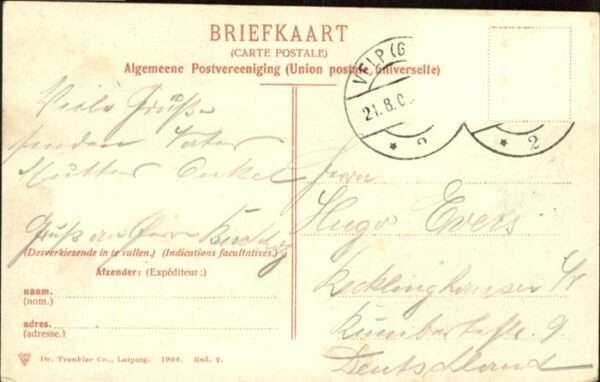 BRIEFKAART
(CARTE POSTALE)
Algemeene Postvereeniging (Union postale universelle)
VELP (G
21.8.0
2
2
Viele Grüße
senden Vater
Mutter Onkel
Gruß an Herrn
(Desverkiezende in te vullen.) (Indications facultatives.)
Afzender: (Expéditeur:)
naam.
(nom.)
adres.
(adresse.)
Dr. Trenkler Co., Leipzig. 1904. Knd. 2.
Herrn
Hugo Evers
Recklinghausen i/W
9
Deutschland